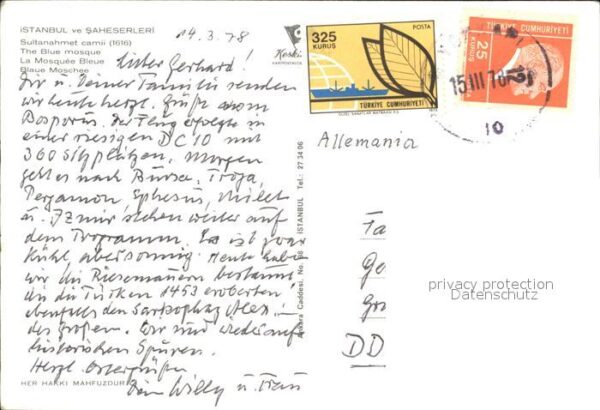 İSTANBUL ve ŞAHESERLERİ
Sultanahmet camii (1616)
The Blue mosque
La Mosquée Bleue
Blaue Moschee
14.3.78
Lieber Gerhard!
Dir u. Deiner Familie senden
wir heute herzl. Grüße vom
Bosporus. Der Flug erfolgte in
einer riesigen DC 10 mit
360 Sitzplätzen. Morgen
geht es nach Bursa, Troja,
Pergamon, Ephesus, Milet
u. Izmir stehen weiter auf
dem Programm. Es ist zwar
kühl aber sonnig. Heute haben
wir die Riesenmauern bestaunt
die die Türken 1453 eroberten
ebenfalls den Sarkophag Alex.
des Großen. Wir sind wieder auf
historischen Spuren.
Herzl. Ostergrüße
Dein Willy u. Frau
HER HAKKI MAHFUZDUR
Keskin
Ankara Caddesi. No. 98 İSTANBUL Tel.: 27 34 06
325
KURUŞ
POSTA
TÜRKİYE CUMHURİYETİ
TÜRKİYE CUMHURİYETİ
25
KURUŞ
15 III 78
10
Allemania
Fa
Ge
Gr
DD
privacy protection
Datenschutz